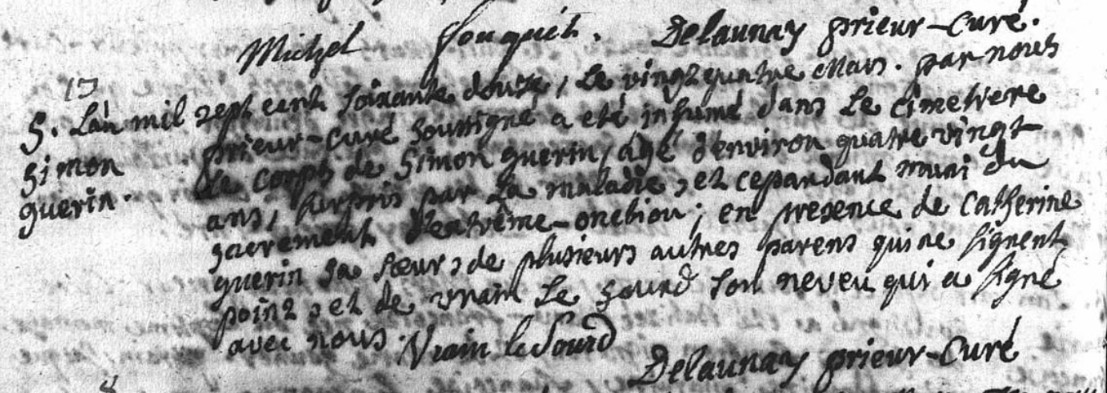 Michel fouquét. Delaunay prieur-Curé.
13
S. L'an mil sept cent soixante douze, Le vingt quatre Mars. par nous
Simon prieur-curé soussigné a eté inhumé dans Le Cimetiere
guerin. Le corps de Simon guerin, agé d'environ quatre vingt
ans, surpris par La maladie, et cepandant muni du
sacrement d'extrême-onction; en presence de Catherine
guerin sa sœur, de plusieurs autres parens qui ne signent
point, et de vrain Le sourd son neveu qui a signé
avec nous. Vrain le Sourd
Delaunay prieur-Curé